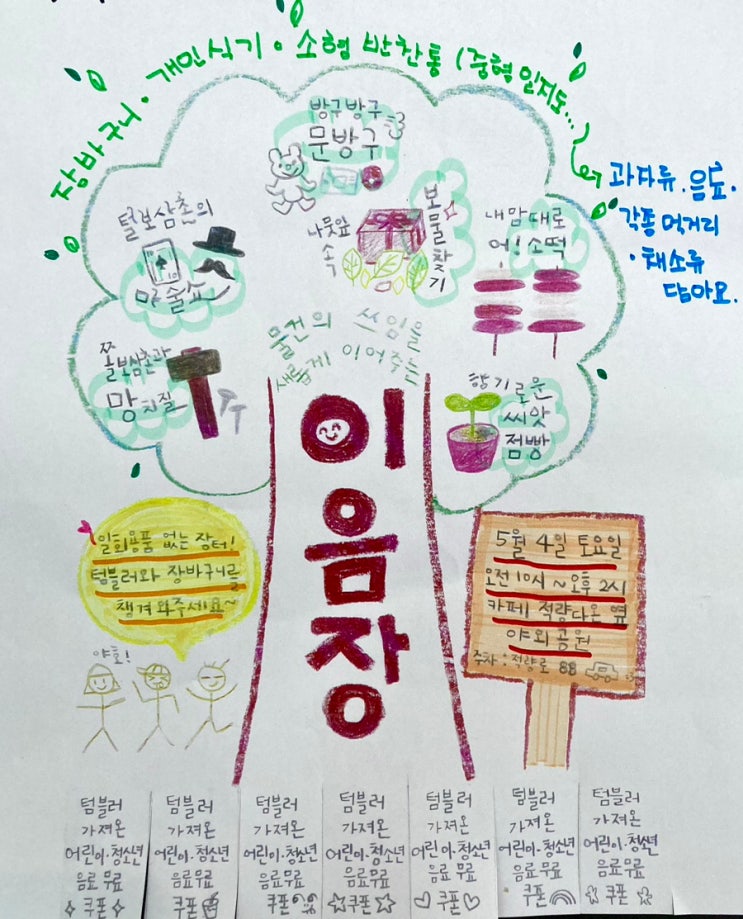 장바구니 · 개인식기 · 소형 반찬통 (중형일지도...)
과자류 · 음료 ·
각종 먹거리
· 채소류
담아요.
방구방구
문방구
털보삼촌의
마술쇼
나뭇잎
속
보물찾기
내맘대로
어! 소떡
쫄보삼촌과
망치질
물건의 쓰임을
새롭게 이어주는
향기로운
씨앗
점빵
이음장
일회용품 없는 장터!
텀블러와 장바구니를
챙겨와주세요~
야호!
5월 4일 토요일
오전 10시 ~ 오후 2시
카페 적량다온 옆
야외공원
주차 : 적량로 88
텀블러
가져온
어린이·청소년
음료 무료
쿠폰
텀블러
가져온
어린이·청소년
음료무료
쿠폰
텀블러
가져온
어린이·청소년
음료무료
쿠폰
텀블러
가져온
어린이·청소년
음료 무료
쿠폰
텀블러
가져온
어린이·청소년
음료 무료
쿠폰
텀블러
가져온
어린이·청소년
음료 무료
쿠폰
텀블러
가져온
어린이·청소년
음료 무료
쿠폰